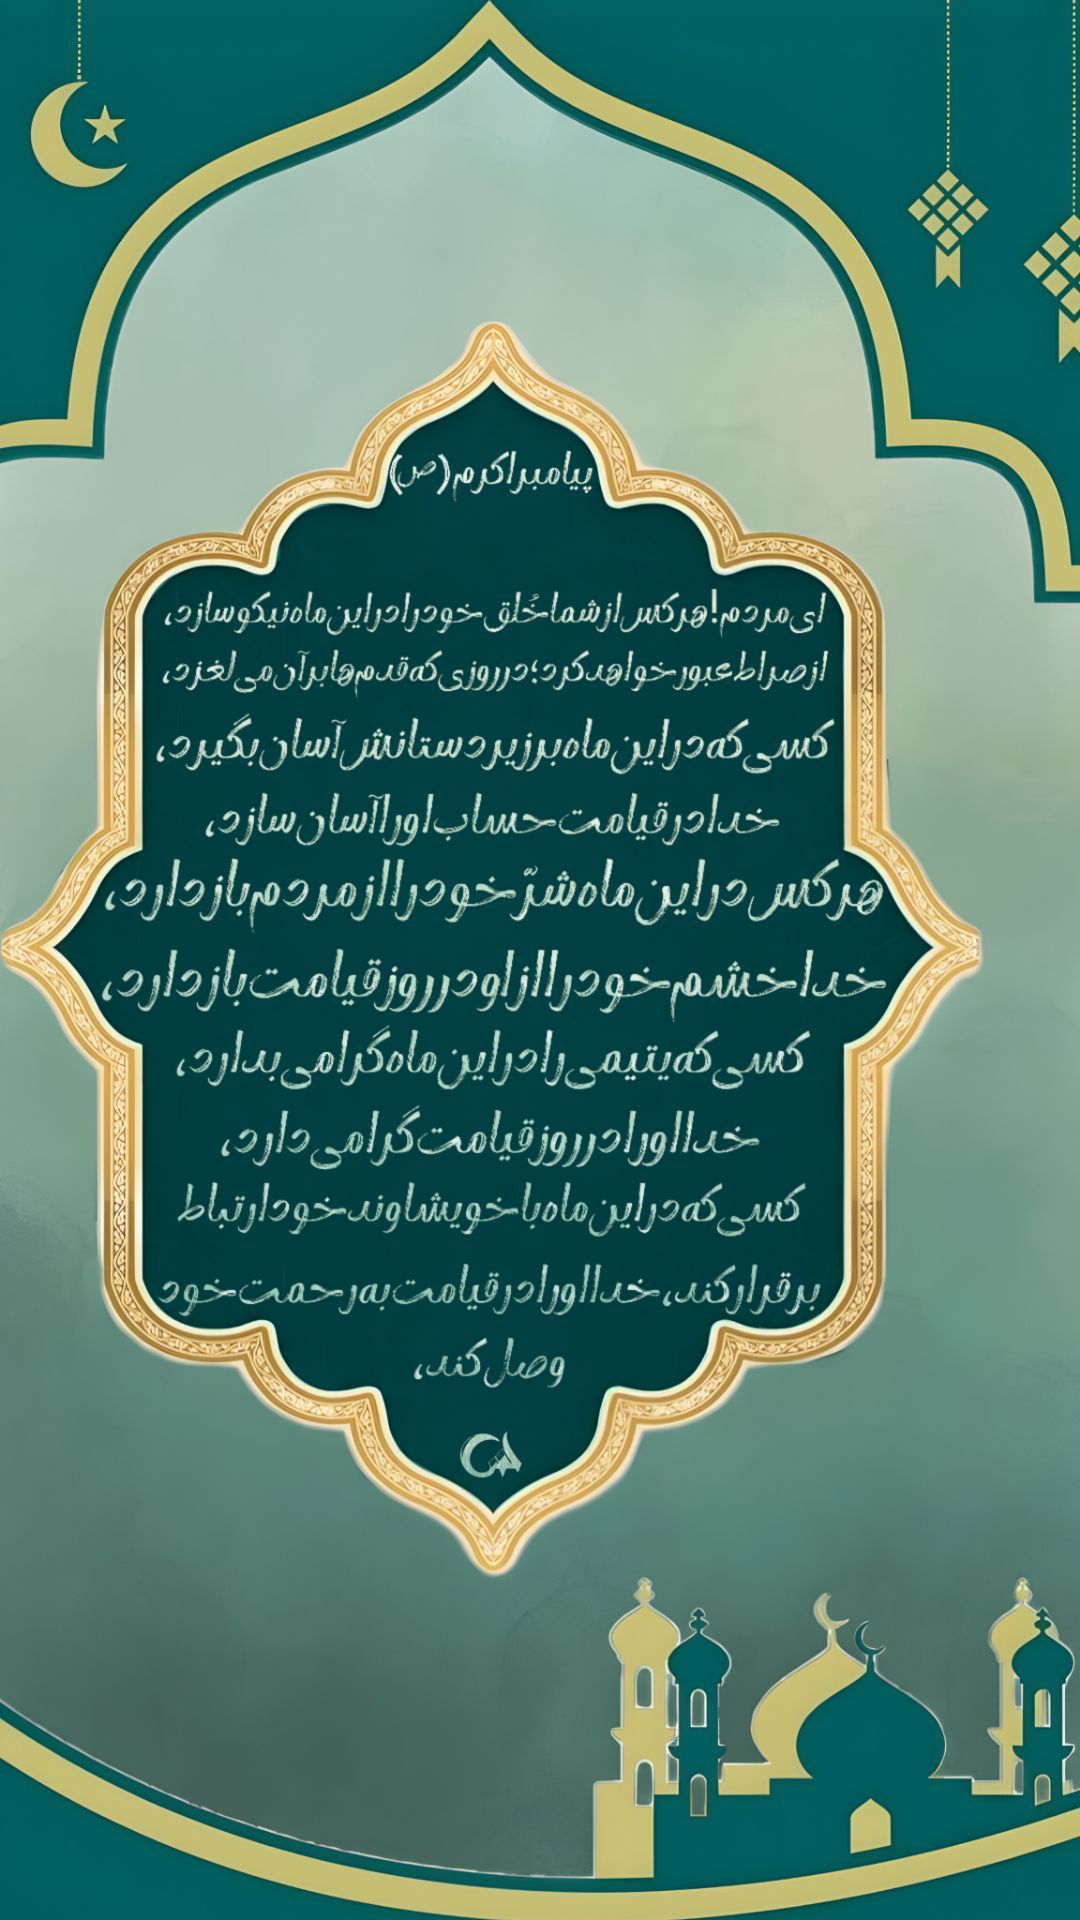 پیامبر اکرم (ص)
ای مردم! هر کس از شما خُلق خود را در این ماه نیکو سازد،
از صراط عبور خواهد کرد؛ در روزی که قدم‌ها بر آن می لغزد،
کسی که در این ماه بر زیر دستانش آسان بگیرد،
خدا در قیامت حساب او را آسان سازد،
هر کس در این ماه شرّ خود را از مردم باز دارد،
خدا خشم خود را از او در روز قیامت باز دارد،
کسی که یتیمی را در این ماه گرامی بدارد،
خدا او را در روز قیامت گرامی دارد،
کسی که در این ماه با خویشاوند خود ارتباط
برقرار کند، خدا او را در قیامت به رحمت خود
وصل کند،